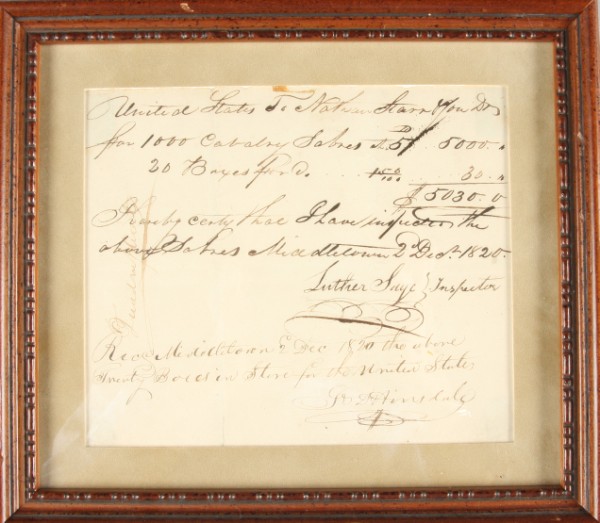 United States To Nathan Starr & Son Dr
for 1000 Cavalry Sabres at 5 5000.
20 Boxes for do. 1.50 30.
$5030.0
I hereby certify that I have inspected the
above Sabres Middletown 2d Decr. 1820.
Luther Sage } Inspector
Recd Middletown 2 Dec 1820 the above
twenty Boxes in Store for the United States
Hinsdale